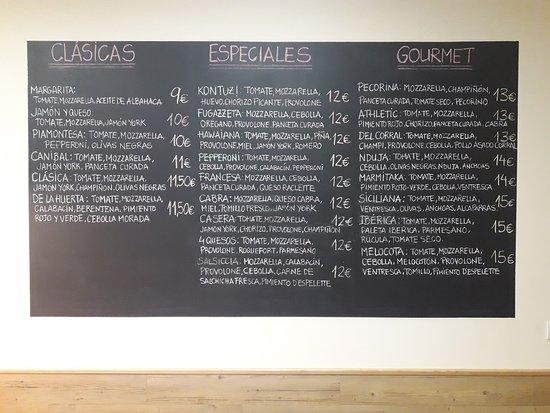 CLÁSICAS
MARGARITA:
TOMATE, MOZZARELLA, ACEITE DE ALBAHACA 9€
JAMÓN Y QUESO:
TOMATE, MOZZARELLA, JAMÓN YORK 10€
PIAMONTESA: TOMATE, MOZZARELLA,
PEPPERONI, OLIVAS NEGRAS 10€
CANIBAL: TOMATE, MOZZARELLA,
JAMÓN YORK, PANCETA CURADA 11€
CLÁSICA: TOMATE, MOZZARELLA,
JAMÓN YORK, CHAMPIÑON, OLIVAS NEGRAS 11,50€
DE LA HUERTA: TOMATE, MOZZARELLA,
CALABACÍN, BERENJENA, PIMIENTO 11,50€
ROJO Y VERDE, CEBOLLA MORADA
ESPECIALES
KONTUZ!: TOMATE, MOZZARELLA,
HUEVO, CHORIZO PICANTE, PROVOLONE 12€
FUGAZZETA: MOZZARELLA, CEBOLLA,
OREGANO, PROVOLONE, PANCETA CURADA 12€
HAWAIANA: TOMATE, MOZZARELLA, PIÑA,
PROVOLONE, MIEL, JAMON YORK, ROMERO 12€
PEPPERONI: TOMATE, MOZZARELLA,
CEBOLLA, PROVOLONE, CALABACÍN, PEPPERONI 12€
FRANCESA: TOMATE, MOZZARELLA, CEBOLLA,
PANCETA CURADA, QUESO RACLETTE 12€
CABRA: MOZZARELLA, QUESO CABRA,
MIEL, TOMILLO FRESCO, JAMÓN YORK 12€
CASERA: TOMATE, MOZZARELLA,
JAMÓN YORK, CHORIZO, PROVOLONE, CHAMPIÑÓN 12€
4 QUESOS: TOMATE, MOZZARELLA,
PROVOLONE, ROQUEFORT, PARMESANO 12€
SALSICCIA: MOZZARELLA, CALABACÍN,
PROVOLONE, CEBOLLA, CARNE DE 12€
SALCHICHA FRESCA, PIMIENTO D'ESPELETTE
GOURMET
PECORINA: MOZZARELLA, CHAMPIÑÓN,
PANCETA CURADA, TOMATE SECO, PECORINO 13€
ATHLETIC: TOMATE, MOZZARELLA,
PIMIENTO ROJO, CHORIZO, PANCETA CURADA, CABRA 13€
DEL CORRAL: TOMATE, MOZZARELLA,
CHAMPI, PROVOLONE, CEBOLLA, POLLO ASADO CORRAL 13€
NDUJA: TOMATE, MOZZARELLA,
CEBOLLA, OLIVAS NEGRAS, NDUJA, ANCHOAS 14€
MARMITAKA: TOMATE, MOZZARELLA,
PIMIENTO ROJO-VERDE, CEBOLLA, VENTRESCA 14€
SICILIANA: TOMATE, MOZZARELLA,
VENTRESCA, OLIVAS, ANCHOAS, ALCAPARRAS 15€
IBÉRICA: TOMATE, MOZZARELLA,
PALETA IBERICA, PARMESANO, 15€
RÚCULA, TOMATE SECO.
MELOCOTA: TOMATE, MOZZARELLA,
CEBOLLA, MELOCOTÓN, PROVOLONE, 15€
VENTRESCA, TOMILLO, PIMIENTO D'ESPELETTE